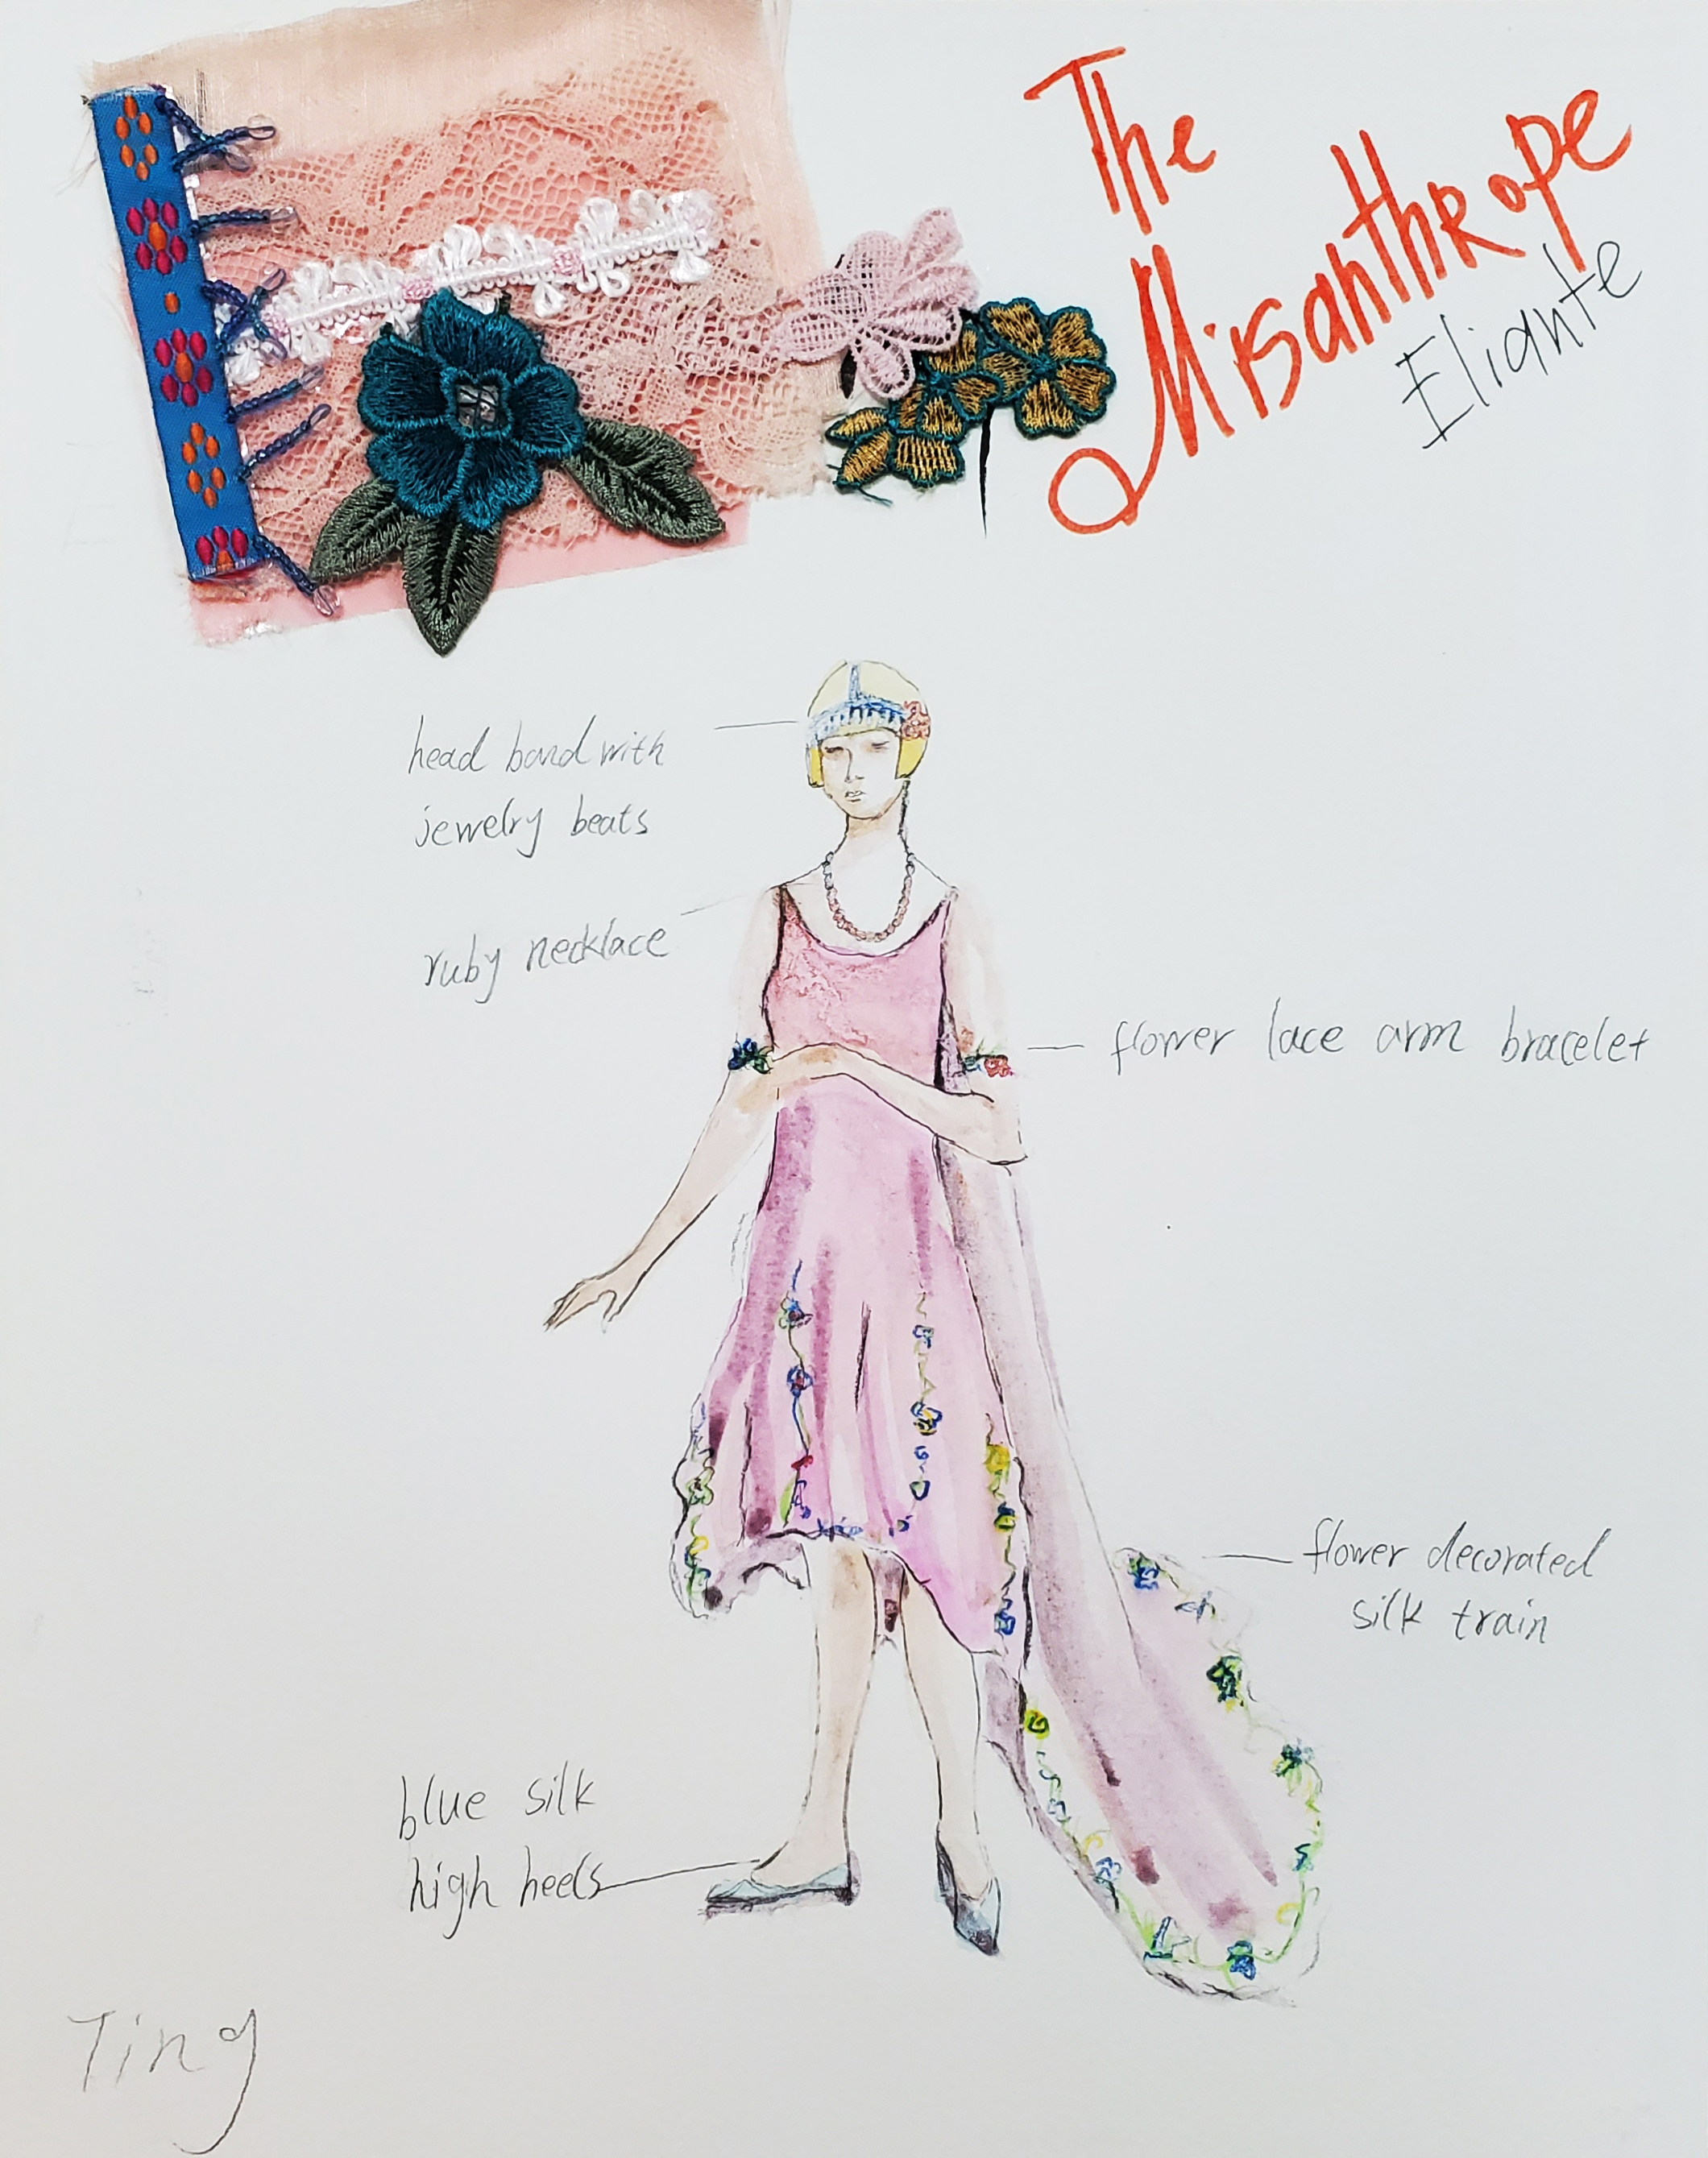 The
Misanthrope
Eliante
head band with
jewelry beats
ruby necklace
flower lace arm bracelet
flower decorated
silk train
blue silk
high heels
Ting